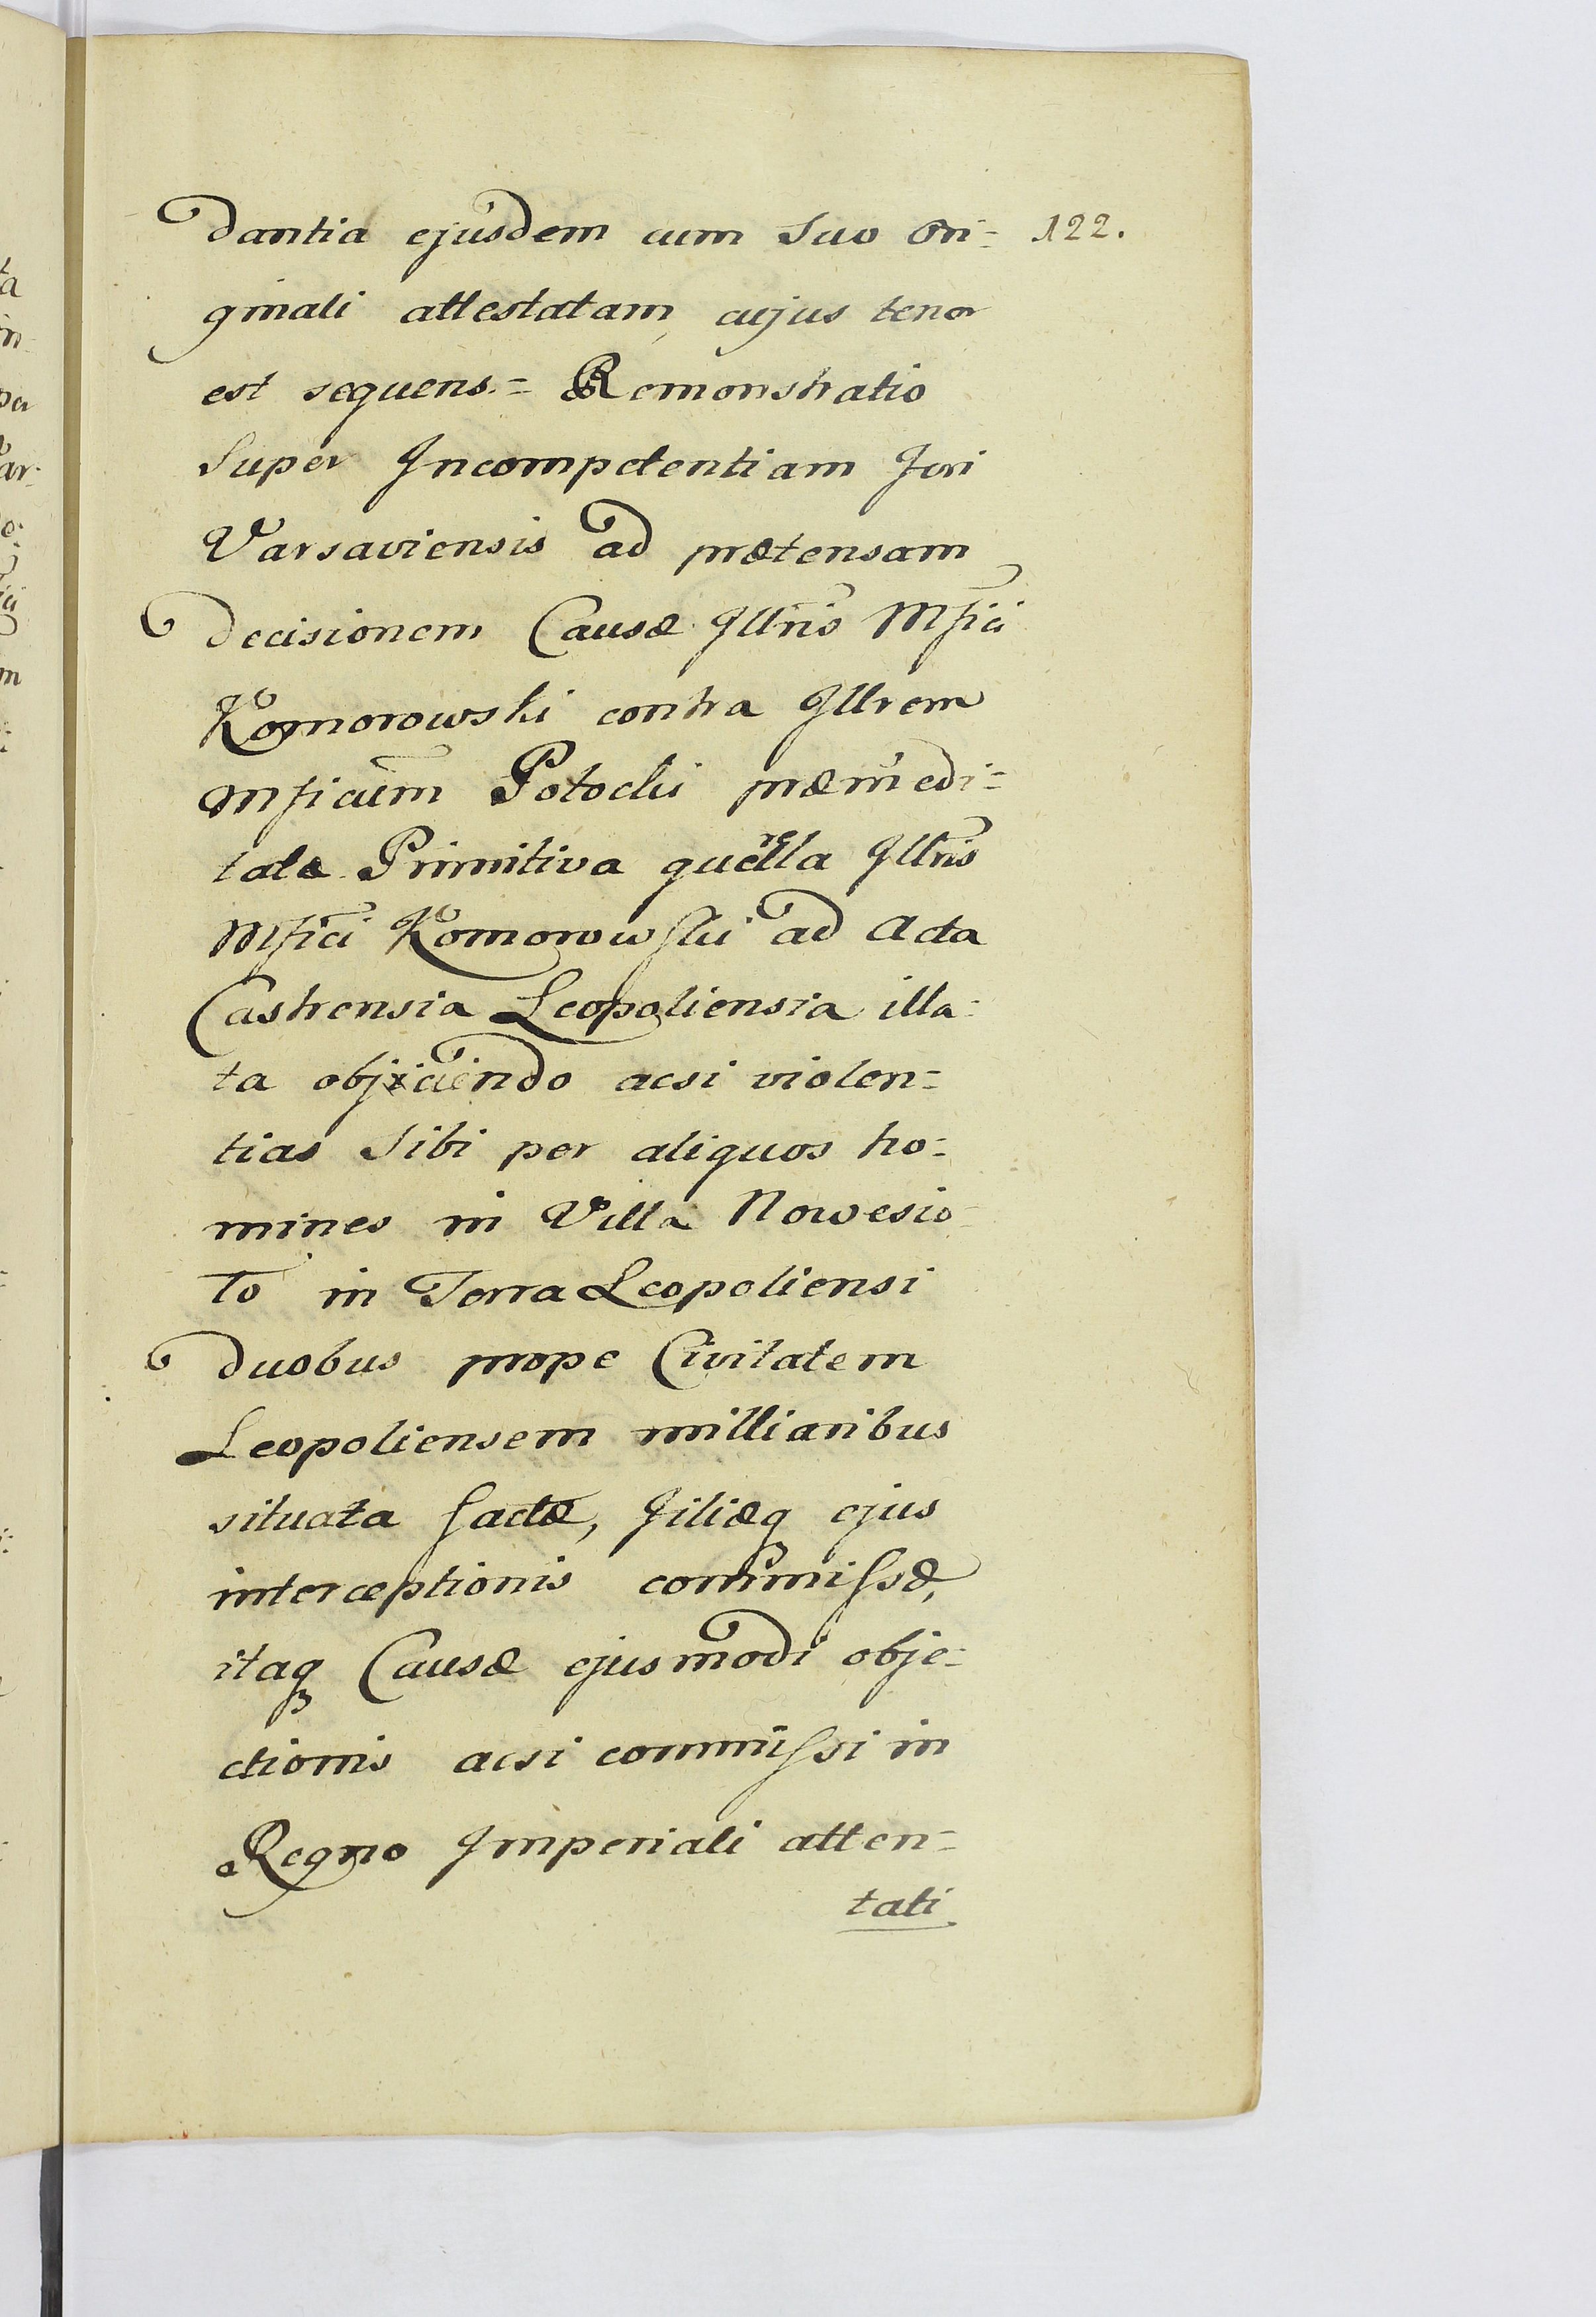 dantia ejusdem cum Suo Ori= 122.
ginali attestatam, cujus tenor
est sequens.= Remonstratio
Super Incompetentiam Fori
Varsaviensis ad prætensam
Decisionem Causæ Illris Mfici
Komorowski contra Illrem
Mficum Potocki præmedi=
tatæ Primitiva querella Illris
Mfici Komorowski ad Acta
Castrensia Leopoliensia illa=
ta objiciendo acsi violen=
tias Sibi per aliquos ho=
mines in Villa Nowesio
To in Terra Leopoliensi
duobus prope Civitatem
Leopoliensem milliaribus
situata factæ, Filiæq ejus
interceptionis commissæ,
itaq Causæ ejusmodi obje=
ctionis acsi commissi in
Regno Imperiali atten=
tati